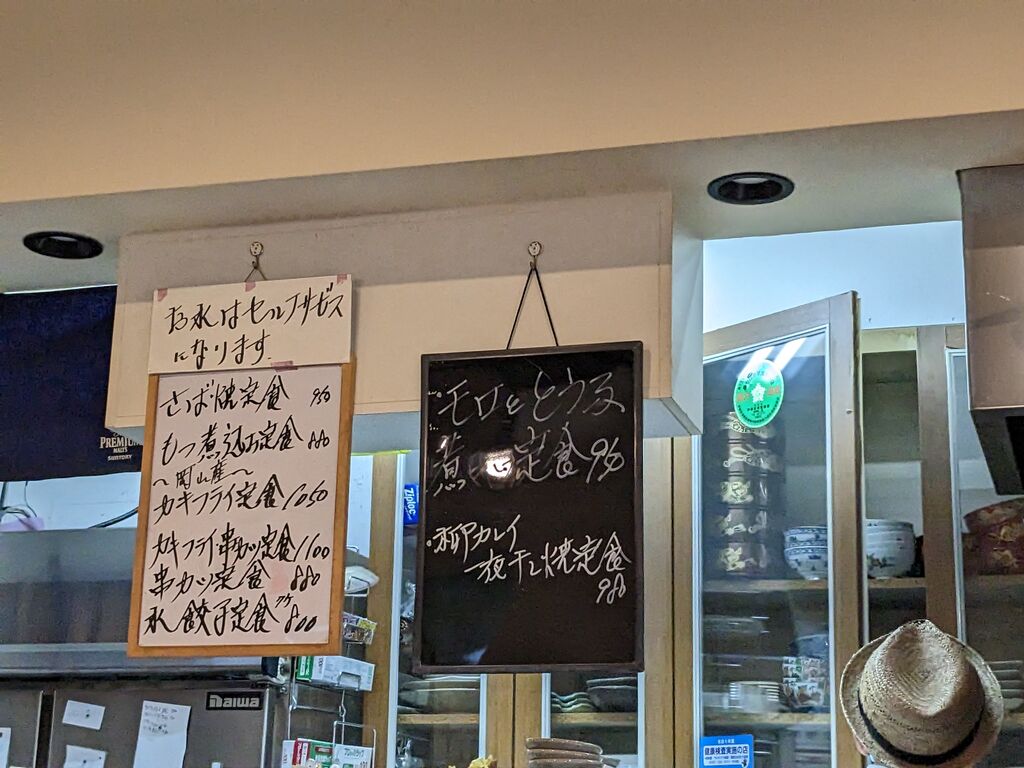 お水はセルフサービス
になります。
さば焼定食 950
もつ煮込み定食 880
〜岡山産〜
カキフライ定食 1050
カキフライ串カツ定食 1100
串カツ定食 880
水餃子定食 800
・モロとどうふ
煮 定食 950
・柳カレイ
一夜干し焼定食
980
PREMIUM
MALT'S
SUNTORY
Ziploc
Daiwa
健康検査実施の店